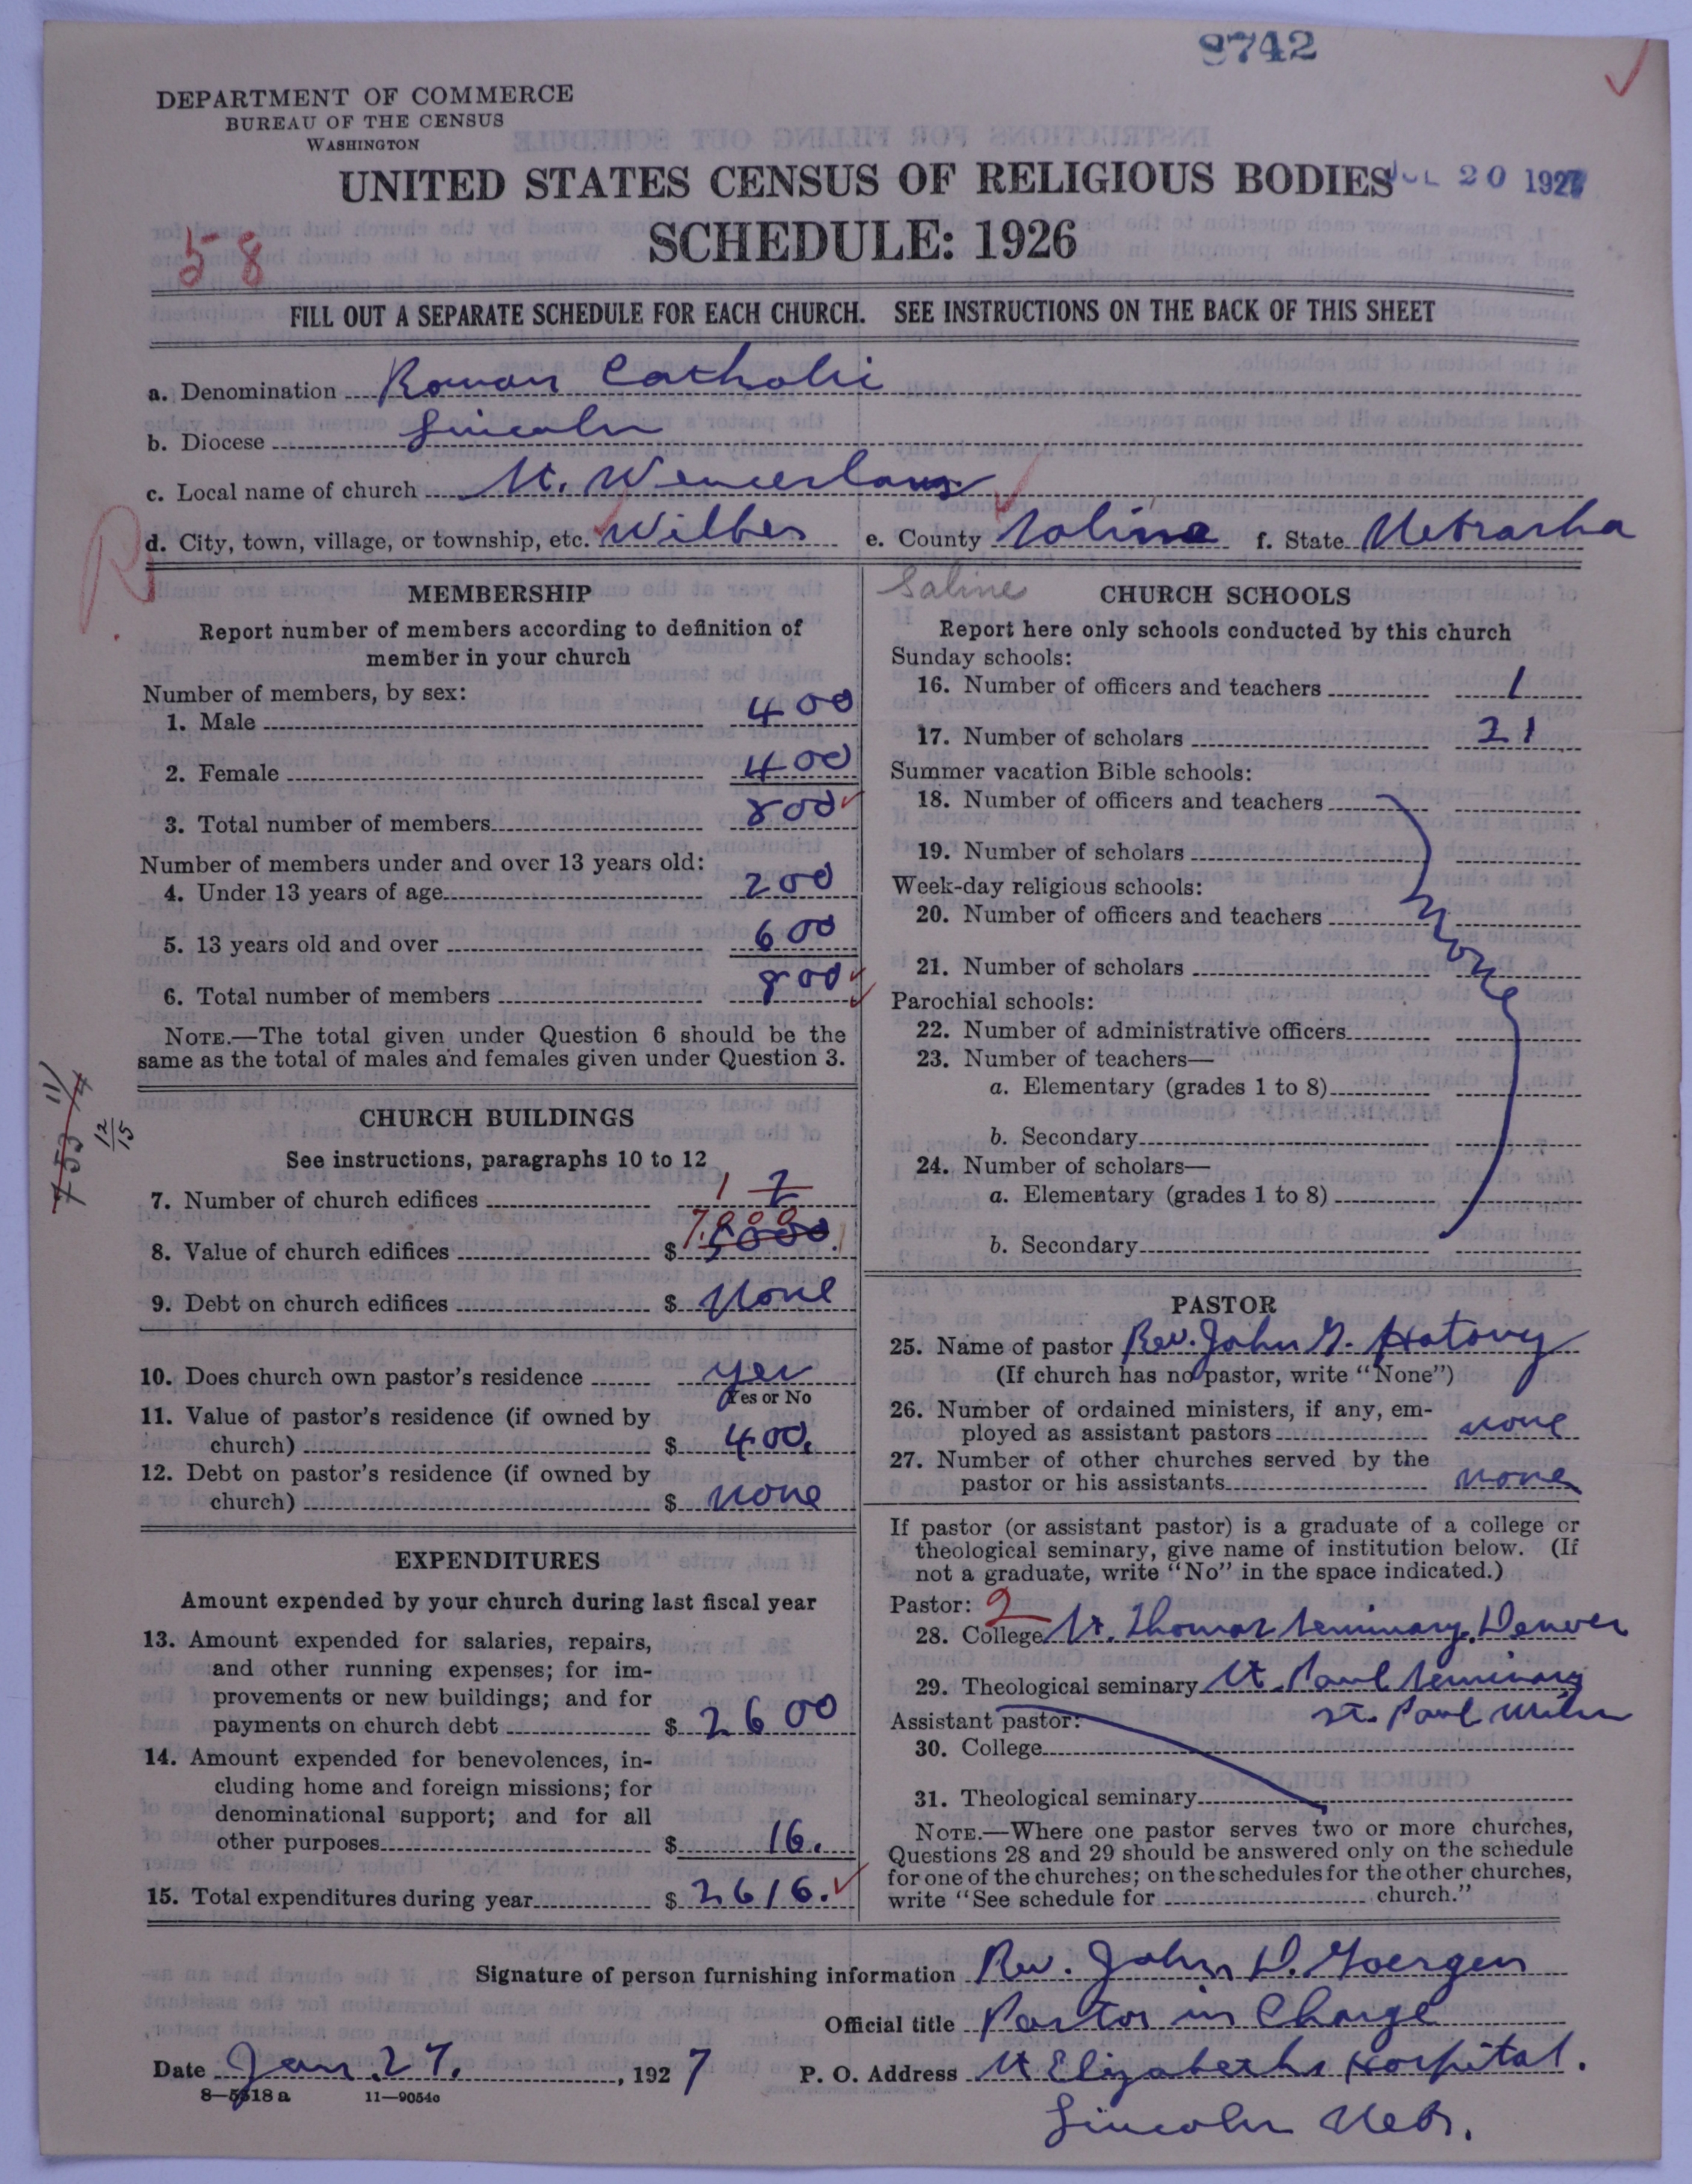 9742
DEPARTMENT OF COMMERCE
BUREAU OF THE CENSUS
WASHINGTON
UNITED STATES CENSUS OF RELIGIOUS BODIES
JUL 20 1927
SCHEDULE: 1926
58
FILL OUT A SEPARATE SCHEDULE FOR EACH CHURCH. SEE INSTRUCTIONS ON THE BACK OF THIS SHEET
a. Denomination Roman Catholic
b. Diocese Lincoln
c. Local name of church St. Wenceslaus
d. City, town, village, or township, etc. Wilber e. County Saline f. State Nebraska
R
MEMBERSHIP
Report number of members according to definition of
member in your church
Number of members, by sex:
1. Male 400
2. Female 400
3. Total number of members 800
Number of members under and over 13 years old:
4. Under 13 years of age 200
5. 13 years old and over 600
6. Total number of members 800
NOTE.—The total given under Question 6 should be the
same as the total of males and females given under Question 3.
11/
12/15
CHURCH BUILDINGS
See instructions, paragraphs 10 to 12
7. Number of church edifices 1
8. Value of church edifices $ 7000 5000.
9. Debt on church edifices $ None
10. Does church own pastor's residence yes
Yes or No
11. Value of pastor's residence (if owned by
church) $ 400.
12. Debt on pastor's residence (if owned by
church) $ none
EXPENDITURES
Amount expended by your church during last fiscal year
13. Amount expended for salaries, repairs,
and other running expenses; for im-
provements or new buildings; and for
payments on church debt $ 2600
14. Amount expended for benevolences, in-
cluding home and foreign missions; for
denominational support; and for all
other purposes $ 16.
15. Total expenditures during year $ 2616.
Saline
CHURCH SCHOOLS
Report here only schools conducted by this church
Sunday schools:
16. Number of officers and teachers 1
17. Number of scholars 21
Summer vacation Bible schools:
18. Number of officers and teachers
19. Number of scholars
Week-day religious schools:
20. Number of officers and teachers
None
21. Number of scholars
Parochial schools:
22. Number of administrative officers
23. Number of teachers—
a. Elementary (grades 1 to 8)
b. Secondary
24. Number of scholars—
a. Elementary (grades 1 to 8)
b. Secondary
PASTOR
25. Name of pastor Rev. John G. Hatovy
(If church has no pastor, write "None")
26. Number of ordained ministers, if any, em-
ployed as assistant pastors none
27. Number of other churches served by the
pastor or his assistants none
If pastor (or assistant pastor) is a graduate of a college or
theological seminary, give name of institution below. (If
not a graduate, write "No" in the space indicated.)
Pastor: 2
28. College St. Thomas Seminary, Denver
29. Theological seminary St. Paul Seminary
St. Paul Minn
Assistant pastor:
30. College
31. Theological seminary
NOTE.—Where one pastor serves two or more churches,
Questions 28 and 29 should be answered only on the schedule
for one of the churches; on the schedules for the other churches,
write "See schedule for church."
Signature of person furnishing information Rev. John D. Goergen
Official title Pastor in Charge
Date Jan. 27, 1927 P. O. Address St Elizabeths Hospital.
8—5518 a 11—9054c
Lincoln Nebr.